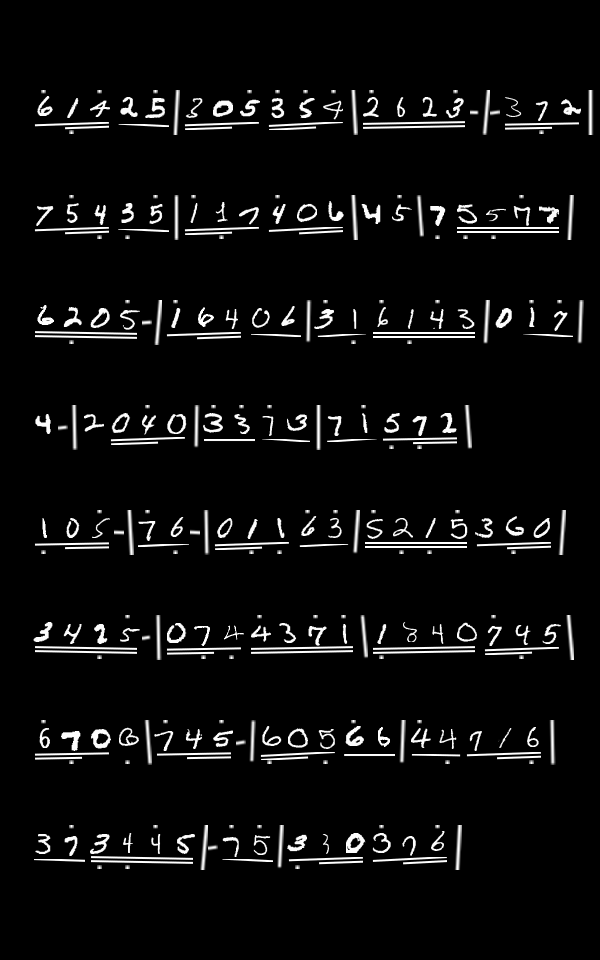 61425|305354|2623-|-372
75435|117406|45|75577
6205-|16406|316143|017
4-|2040|3373|71572
105-|76-|01163|5215360
3425-|0744371|1840745
6706|745-|60566|44716
373445|-75|330376